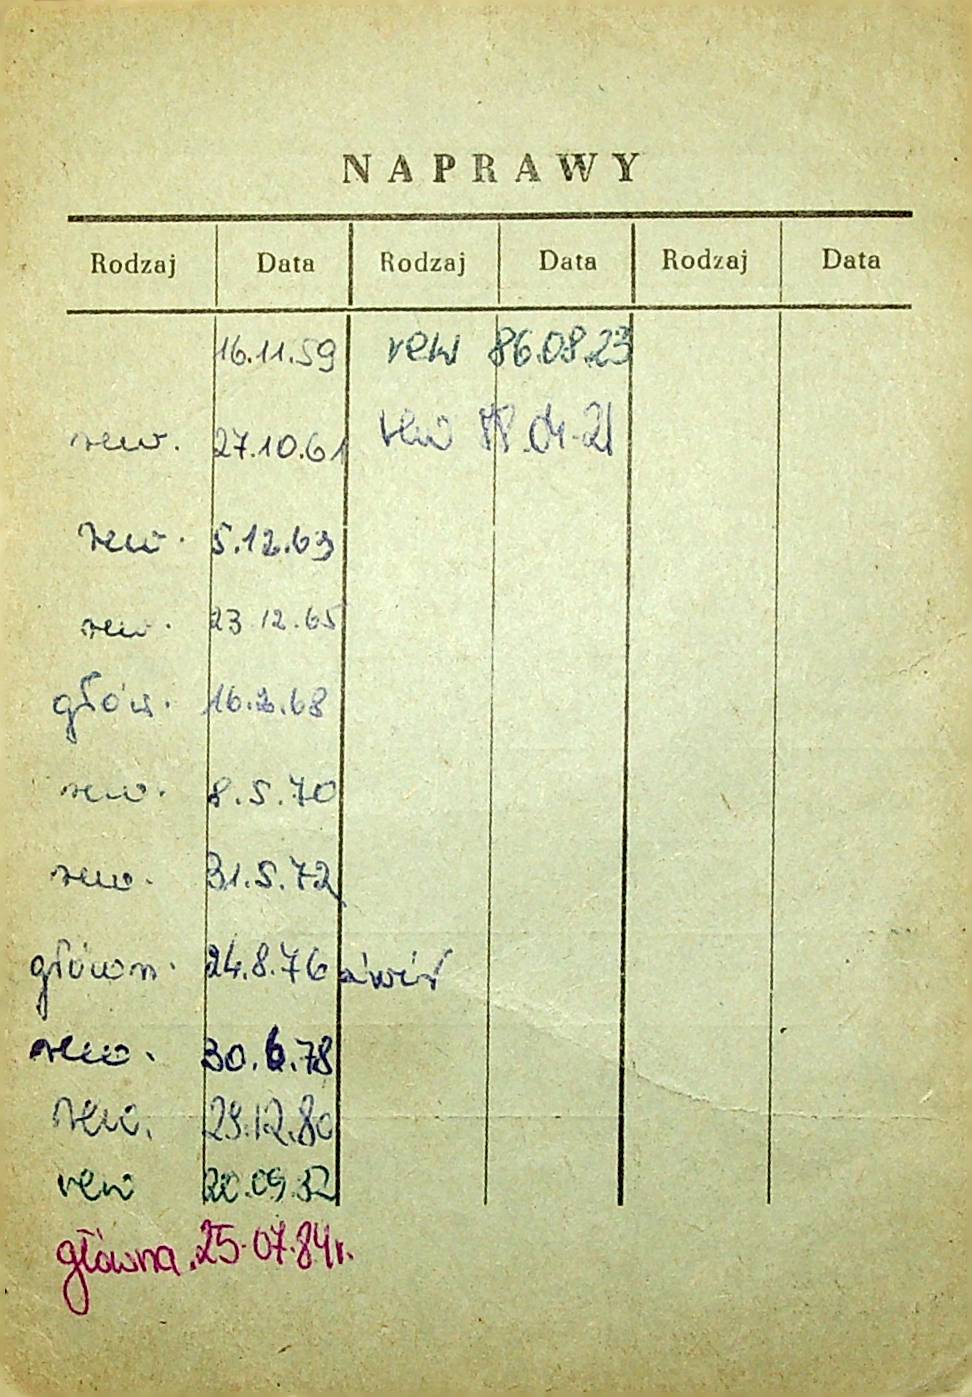 NAPRAWY
Rodzaj Data Rodzaj Data Rodzaj Data
16.11.59 rew 86.08.23
rew. 27.10.61 rew 88.04.21
rew. 5.12.63
rew. 23.12.65
głów. 16.2.68
rew. 8.5.70
rew. 31.5.72
główn. 24.8.76
rew. 30.6.78
rew. 29.12.80
rew 20.09.82
główna. 25.07.84r.